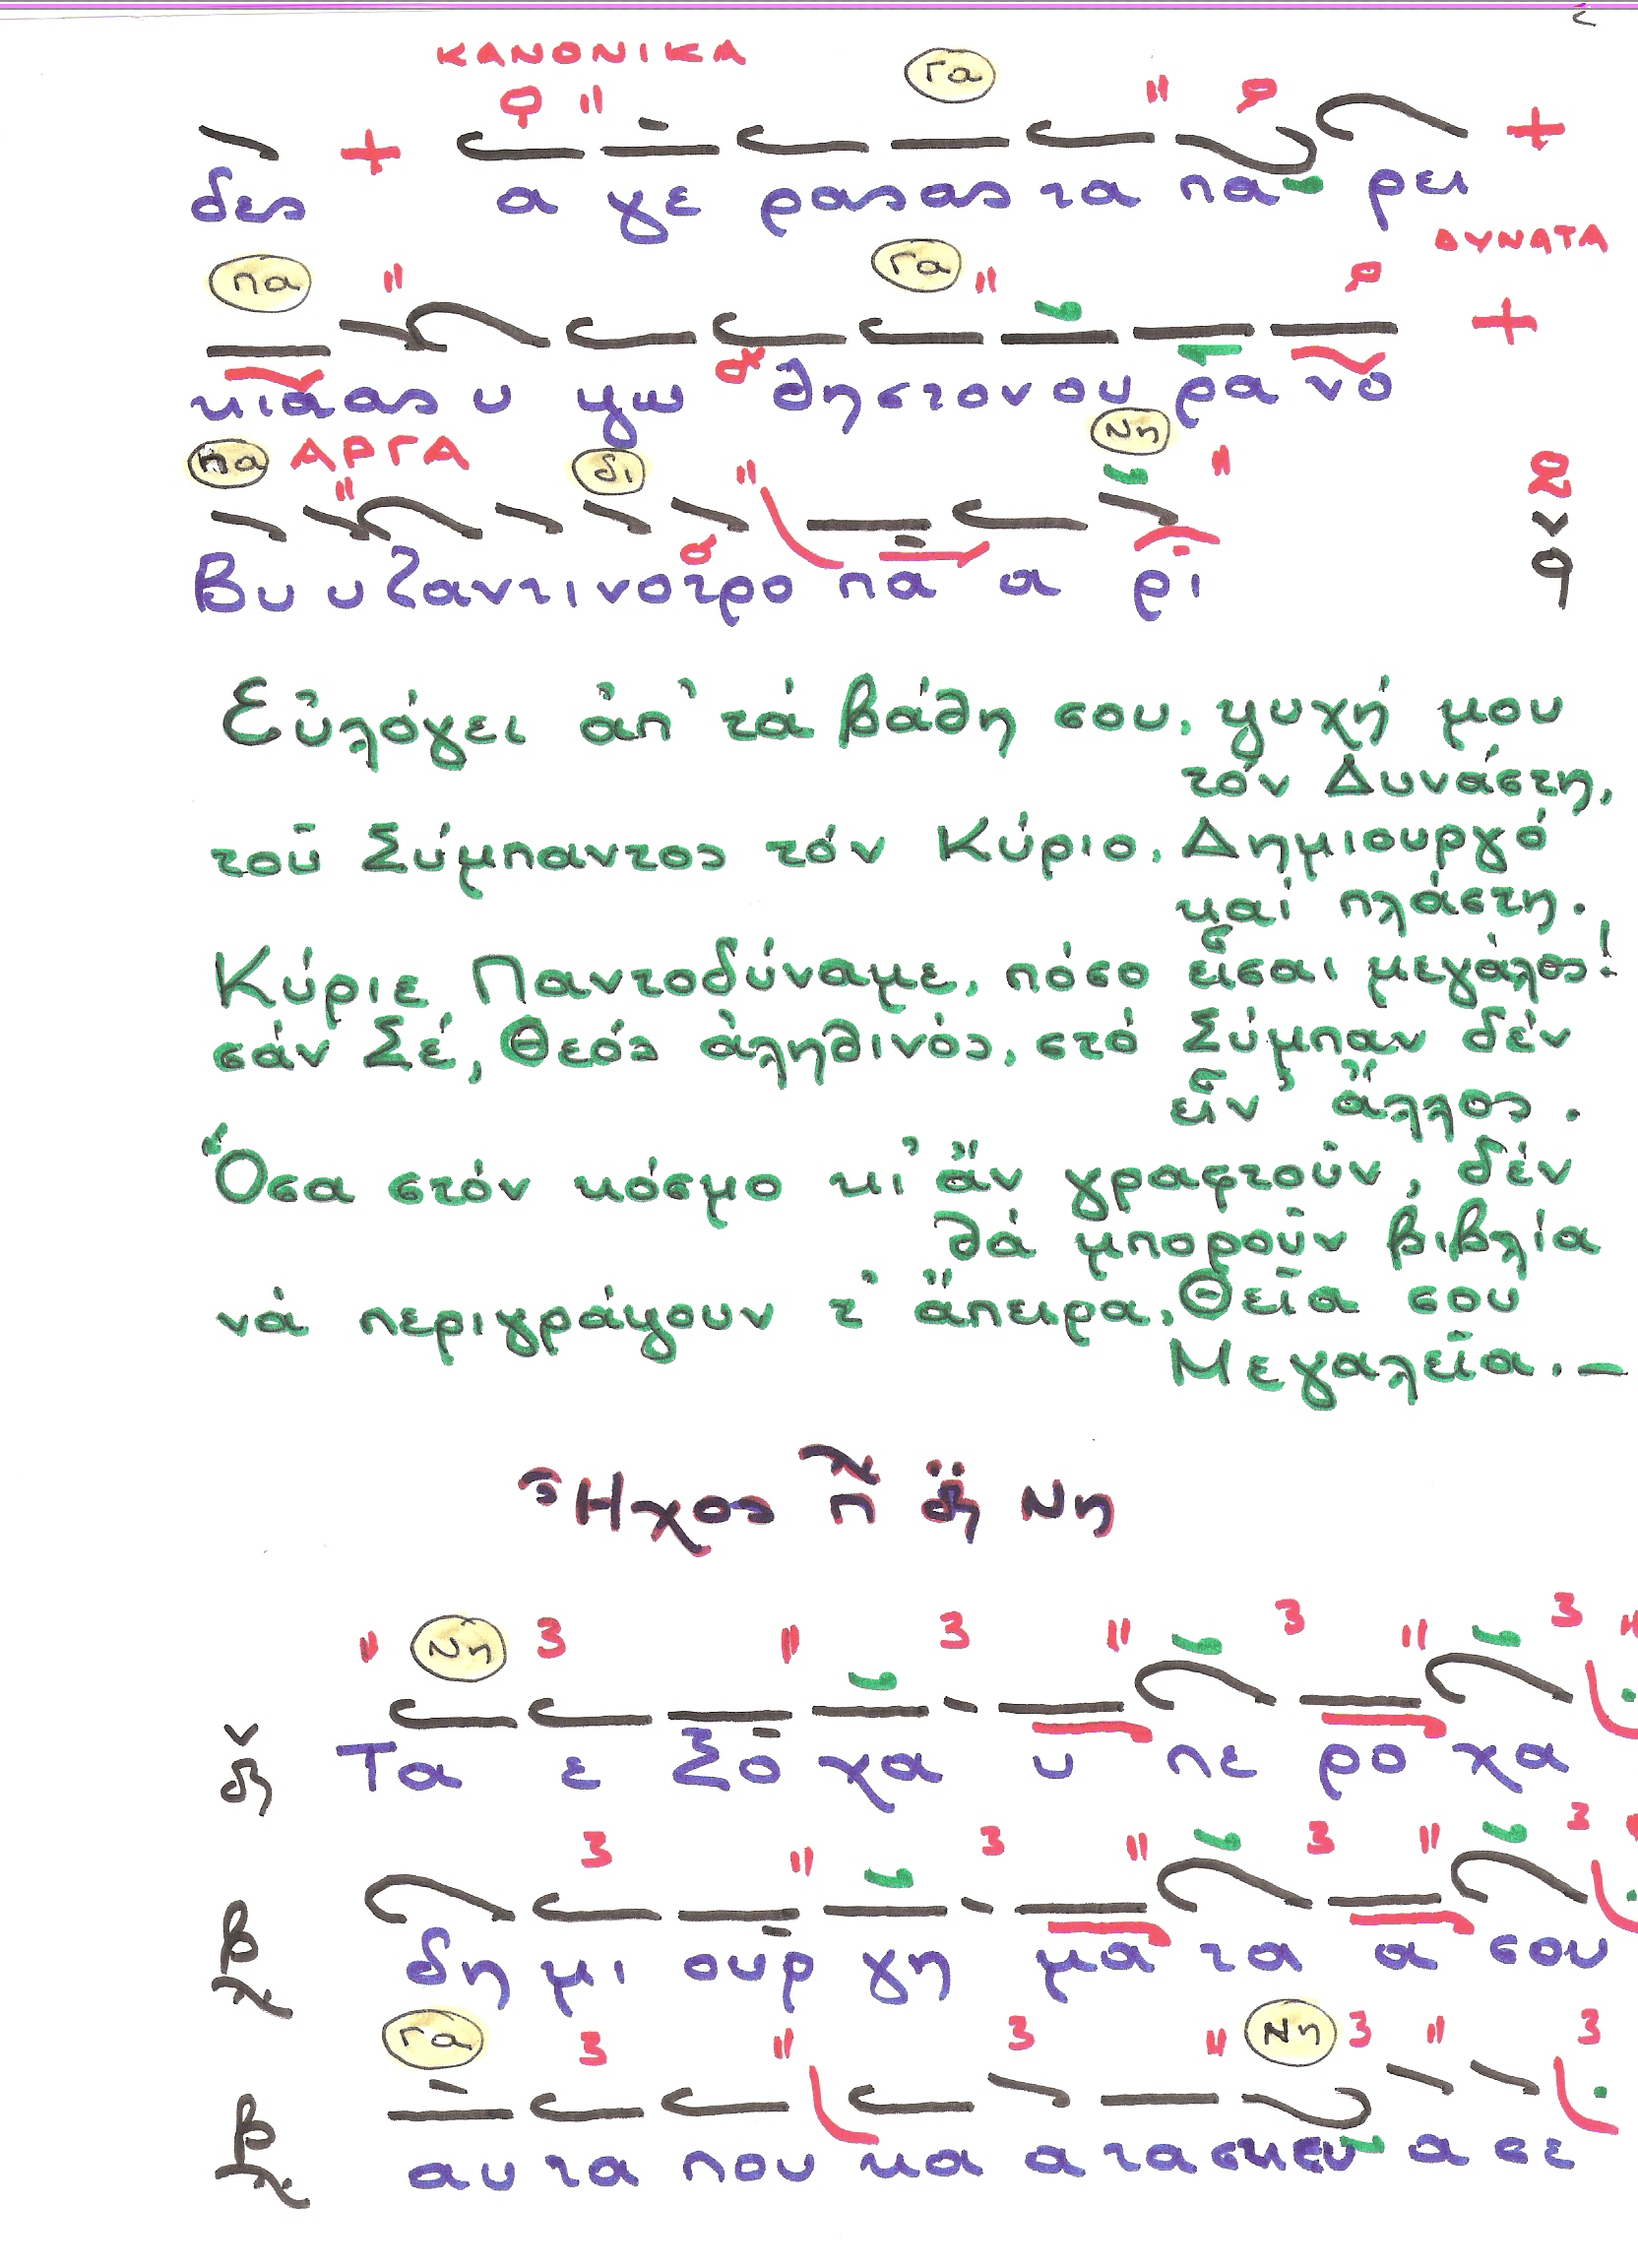 ΚΑΝΟΝΙΚΑ
Γα
δες α γε ρασας τα πα ρει
ΔΥΝΑΤΑ
πα Γα
κιαας υ ψω θηστονου ρα νό
πα ΑΡΓΑ δι Νη
Βυ υζαντινοτρο πα α ρι
Εὐλόγει ἀπ' τά βάθη σου, ψυχή μου
τόν Δυνάστη,
τοῦ Σύμπαντος τόν Κύριο, Δημιουργό
καί πλάστη.
Κύριε Παντοδύναμε, πόσο εἶσαι μεγάλος!
σάν Σέ, Θεός ἀληθινός, στό Σύμπαν δέν
εἶν' ἄλλος.
Ὅσα στόν κόσμο κι' ἄν γραφτοῦν, δέν
θά μποροῦν βιβλία
νά περιγράψουν τ' ἄπειρα, Θεῖα σου
Μεγαλεῖα.—
Ἦχος π δη Νη
Νη
Τα ε ξο χα υ πε ρο χα
δη μι ουρ γη μα τα α σου
Γα Νη
αυ τα που κα α τα σκευ α σε